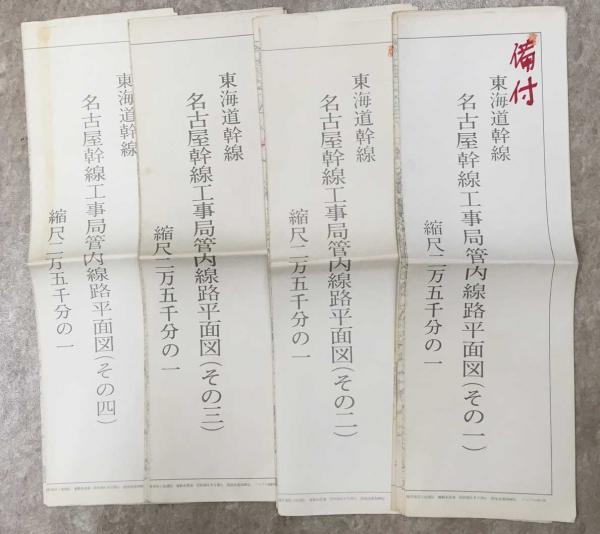 備付
東海道幹線
名古屋幹線工事局管内線路平面図(その一)
縮尺二万五千分の一
東海道幹線
名古屋幹線工事局管内線路平面図(その二)
縮尺二万五千分の一
東海道幹線
名古屋幹線工事局管内線路平面図(その三)
縮尺二万五千分の一
東海道幹線
名古屋幹線工事局管内線路平面図(その四)
縮尺二万五千分の一